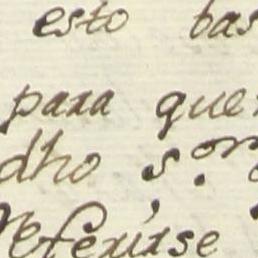 esto bas
para que
dho s.or
referirse